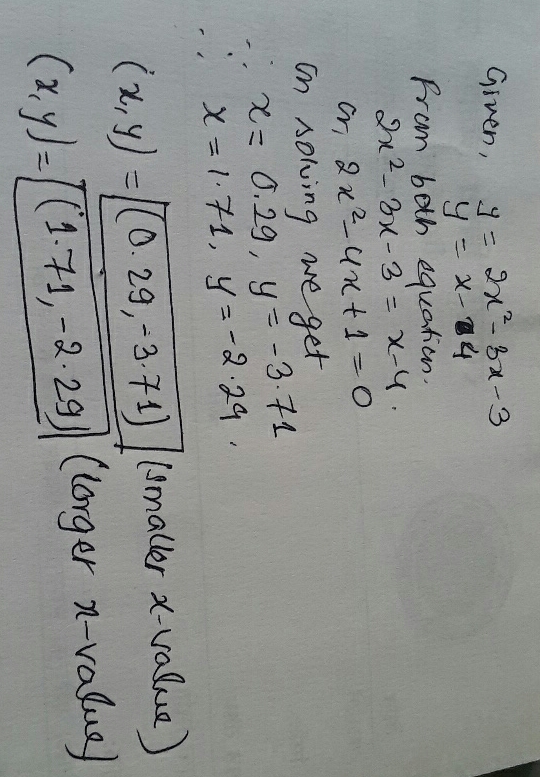 Given, y = 2x² - 3x - 3
y = x - 4
From both equation.
2x² - 3x - 3 = x - 4.
or, 2x² - 4x + 1 = 0
on solving we get
∴ x = 0.29, y = -3.71
∴ x = 1.71, y = -2.29.
(x, y) = (0.29, -3.71) (smaller x-value)
(x, y) = (1.71, -2.29) (larger x-value)